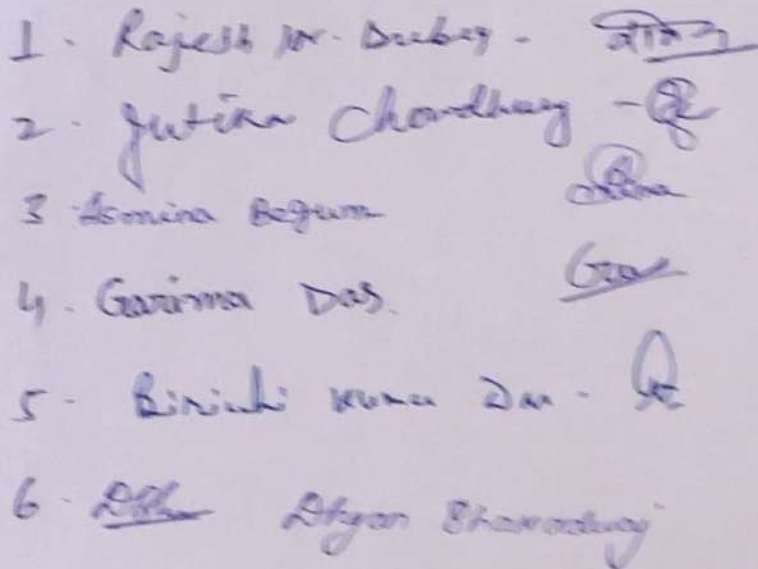 1. Rajesh Kr. Dubey -
2. Jutika Chowdhury -
3 Asmina Begum
4. Garima Das.
5 - Birinchi Kumar Das -
6. Dhyan Bharadwaj